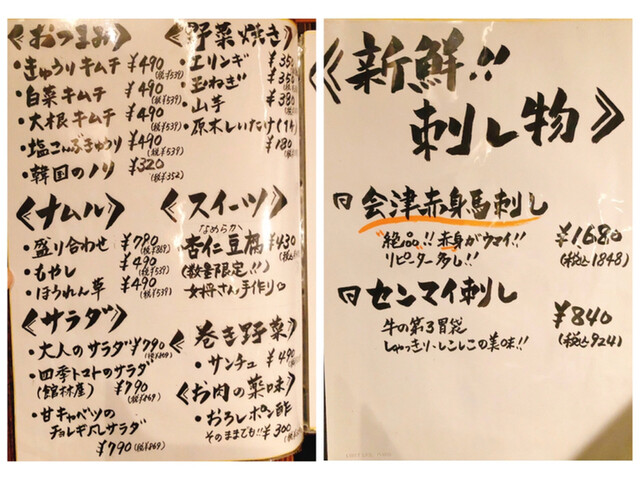 《おつまみ》
・きゅうりキムチ ¥490
(税¥539)
・白菜キムチ ¥490
(税¥539)
・大根キムチ ¥490
(税¥539)
・塩こんぶきゅうり ¥490
(税¥539)
・韓国のノリ ¥320
(税¥352)
《ナムル》
・盛り合わせ ¥790
(税¥869)
・もやし ¥490
(税¥539)
・ほうれん草 ¥490
(税¥539)
《サラダ》
・大人のサラダ ¥790
(税¥869)
・四季トマトのサラダ
(館林産) ¥790
(税¥869)
・甘キャベツの
チョレギ風サラダ
¥790(税¥869)
《野菜焼き》
・エリンギ ¥350
・玉ねぎ ¥350
・山芋 ¥380
・原木しいたけ(1ケ)
¥180
《スイーツ》
なめらか
・杏仁豆腐 ¥430
(数量限定!!)
女将さん手作り
《巻き野菜》
・サンチュ ¥490
《お肉の薬味》
・おろしポン酢
そのままでも!! ¥300
《新鮮!!
刺し物》
会津赤身馬刺し
"絶品"!! 赤身がウマイ!!
リピーター多し!!
¥1680
(税込1848)
センマイ刺し
牛の第3胃袋
しゃっきり・しこしこの美味!!
¥840
(税込924)